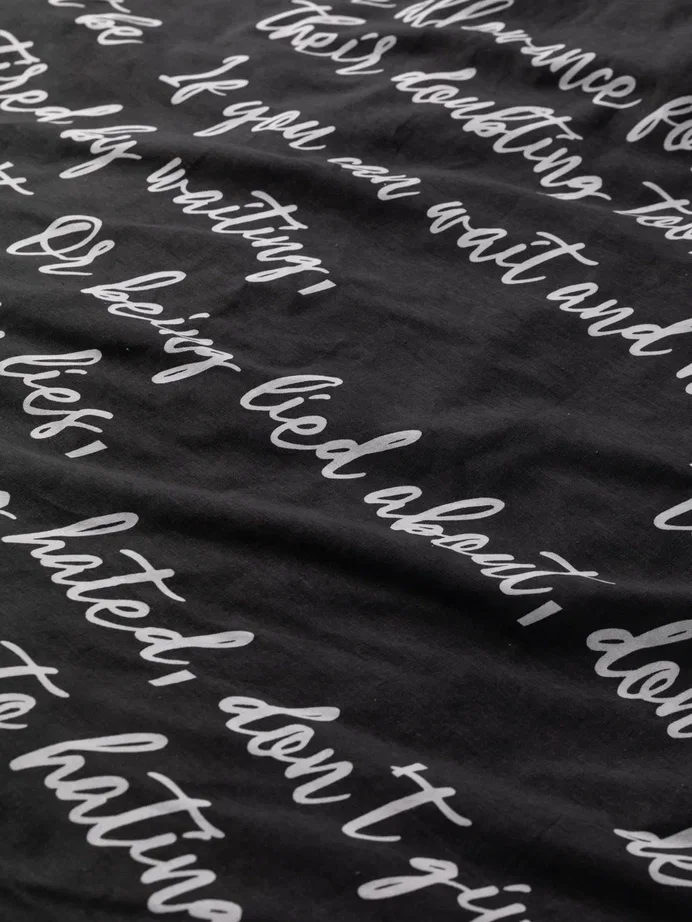 allowance fo
their doubting too
be
If you can wait and
tired by waiting,
Or being lied about, don
lies,
hated, don't giv
to hating